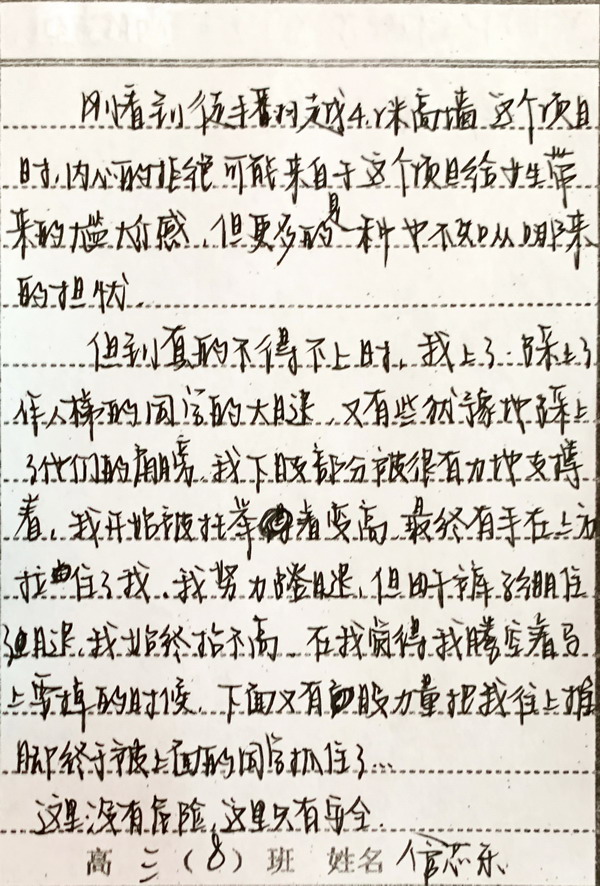 刚看到徒手翻越4.2米高墙这个项目
时,内心的拒绝可能来自于这个项目给女生带
来的尴尬感,但更多的是一种也不知从哪来
的担忧.
但到真的不得不上时,我上了:踩上了
作人梯的同学的大腿,又有些犹豫地踩上
了他们的肩膀,我下肢部分被很有力地支撑
着,我开始被托举着变高,最终有手在上方
拉住了我.我努力蹬腿,但由于裤子绷住
了腿,我始终抬不高,在我觉得我腾空着马
上要掉的时候,下面又有股力量把我往上推
脚终于被上面的同学抓住了...
这里没有危险,这里只有安全.
高三(8)班 姓名 信芯乐